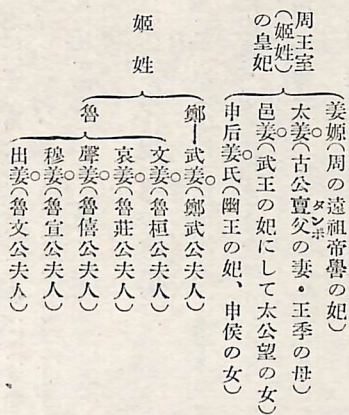 周王室
(姬姓)
の皇妃
姜姬(周の遠祖帝嚳の妃)
太姜(古公亶父の妻・王季の母)
タンポ
邑姜(武王の妃にして太公望の女)
申后姜氏(幽王の妃、申侯の女)
姬姓
鄭—武姜(鄭武公夫人)
魯
文姜(魯桓公夫人)
哀姜(魯莊公夫人)
聲姜(魯僖公夫人)
穆姜(魯宣公夫人)
出姜(魯文公夫人)